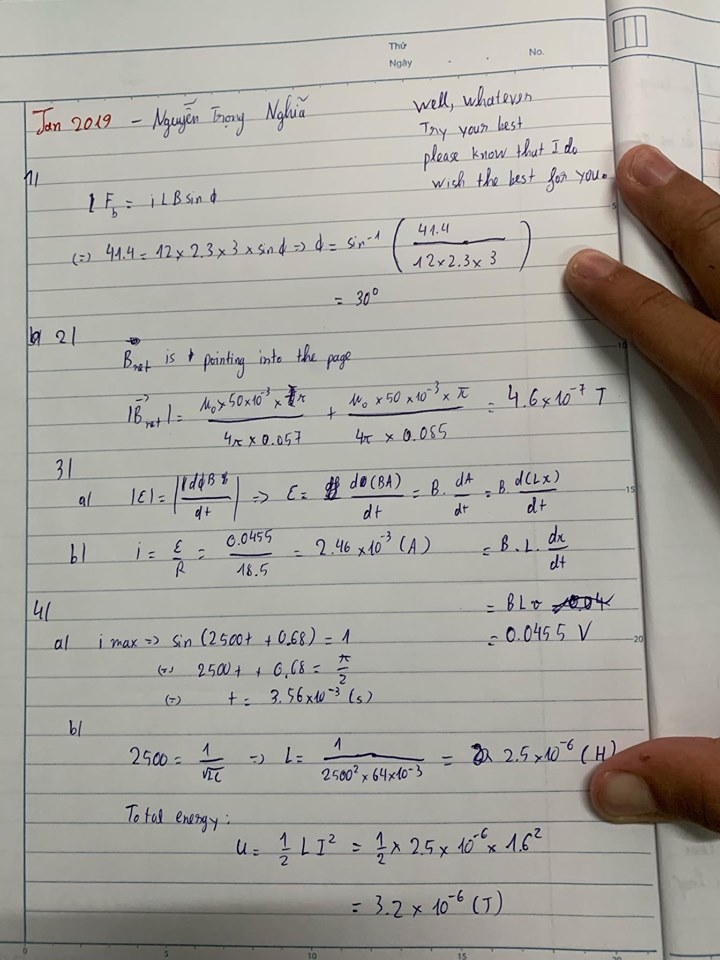 Thứ
Ngày . . No.
Jan 2019 - Nguyễn Trọng Nghĩa
Well, whatever
Try your best
please know that I do
wish the best for you.
1/
F_b = i L B sin ϕ
(=) 41.4 = 12 × 2.3 × 3 × sin ϕ => ϕ = sin⁻¹ (41.4 / 12 × 2.3 × 3)
= 30°
2/
B_net is pointing into the page
|B_net| = μ₀ × 50×10⁻³ × π / 4π × 0.057 + μ₀ × 50 × 10⁻³ × π / 4π × 0.085 = 4.6×10⁻⁷ T
3/
a/ |ε| = |dϕB / dt| => ε = d(BA) / dt = B. dA / dt = B. d(Lx) / dt
b/ i = ε / R = 0.0455 / 18.5 = 2.46 ×10⁻³ (A)
= B. L. dx / dt
= BLv
= 0.0455 V
4/
a/ i max => sin (2500t + 0.68) = 1
(=) 2500t + 0.68 = π / 2
(=) t = 3.56×10⁻³ (s)
b/
2500 = 1 / √LC => L = 1 / 2500² × 64×10⁻³ = 2.5×10⁻⁶ (H)
Total energy:
U = 1/2 L I² = 1/2 × 2.5 × 10⁻⁶ × 1.6²
= 3.2 × 10⁻⁶ (J)
5
10
15
20
0
5
10
15
20